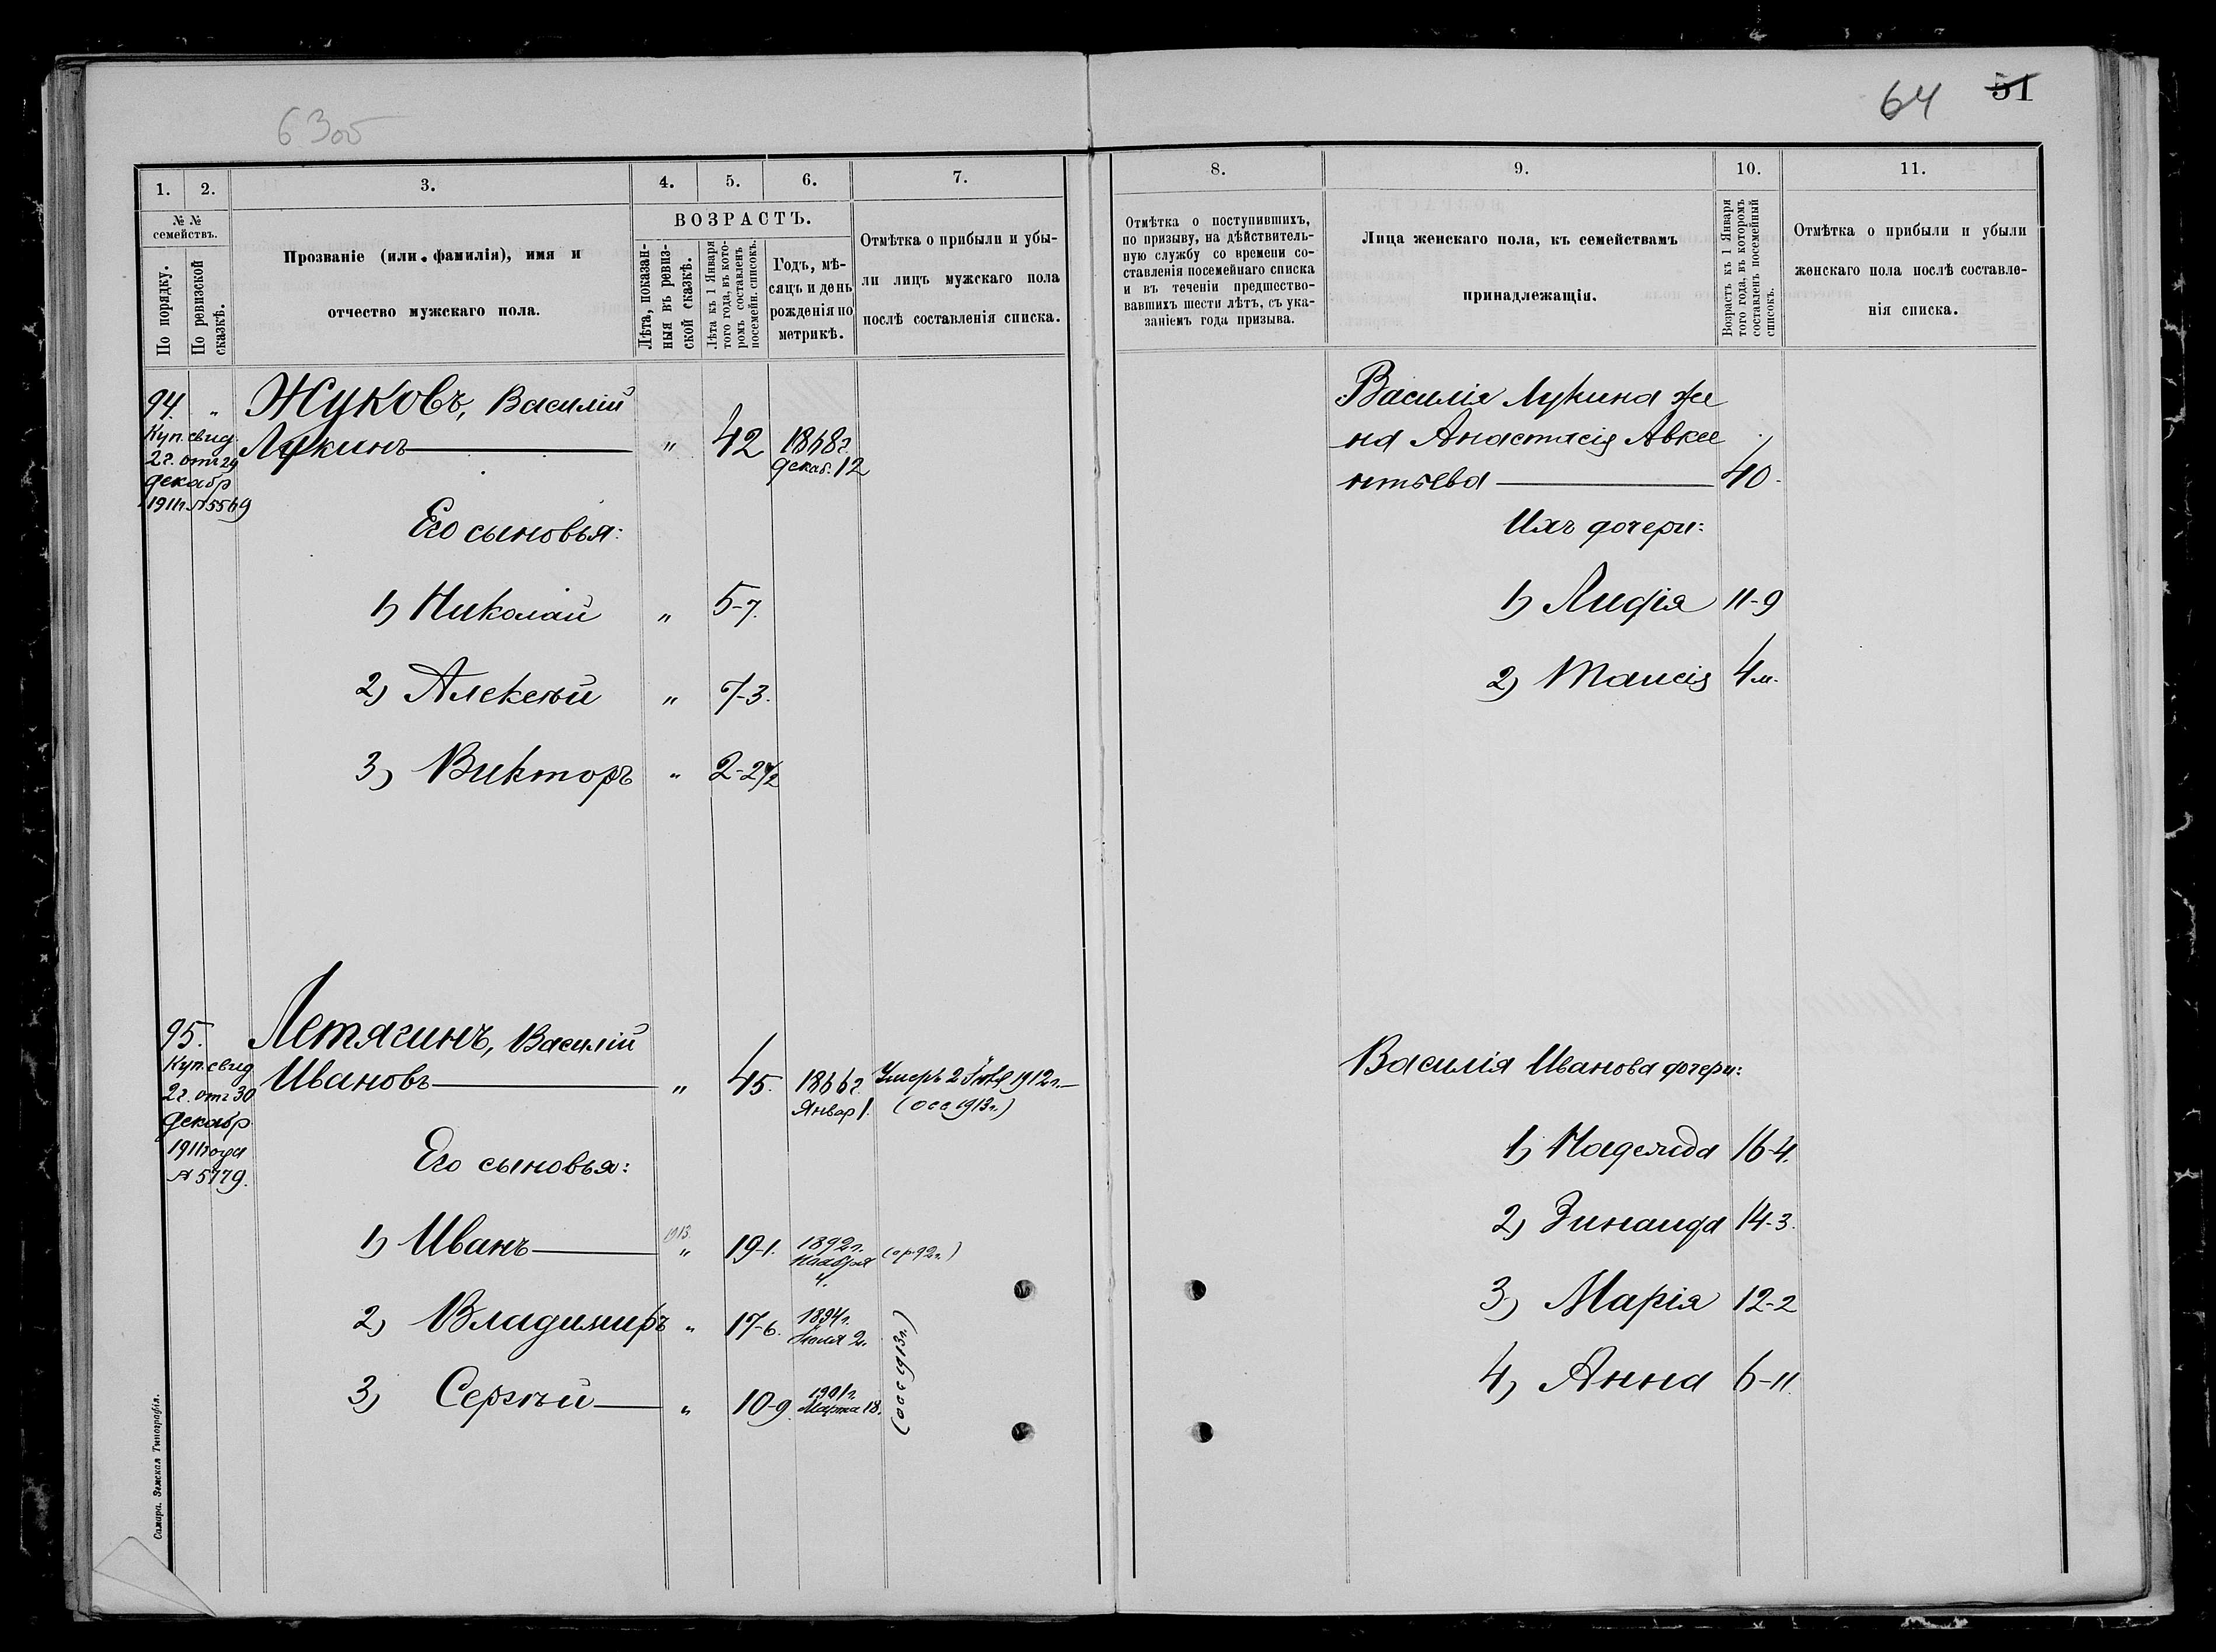 63об
1. 2. 3. 4. 5. 6. 7.
№ №
семействъ.
По порядку.
По ревизской
сказкѣ.
Прозваніе (или фамилія), имя и
отчество мужскаго пола.
ВОЗРАСТЪ.
Лѣта, показан-
ныя въ ревиз-
ской сказкѣ.
Лѣта къ 1 Января
того года, въ кото-
ромъ составленъ
посемейн. списокъ.
Годъ, мѣ-
сяцъ и день
рожденія по
метрикѣ.
Отмѣтка о прибыли и убы-
ли лицъ мужскаго пола
послѣ составленія списка.
94. " Жуковъ, Василій
Лукинъ " 42 1868г.
декаб. 12
Куп. свид.
2г. отъ 29
декабр
1911г. № 5569
Его сыновья:
1) Николай " 5-7.
2) Алексѣй " 7-3.
3) Викторъ " 2-2½
95. Летягинъ, Василій
Ивановъ " 45. 1866г. Умеръ 2 1912г.
Январ 1. (осс 1913г.)
Куп. свид
2г. отъ 30
декабр.
1911 года
№ 5779.
Его сыновья:
1913.
1) Иванъ " 19-1. 1892г. (ор 92г.)
Ноября
4.
2) Владимиръ " 17-6. 1894г.
Іюля 2.
3) Сергѣй " 10-9. 1901г.
Марта 18.
(осс 1913г.)
Самара. Земская Типографія.
64 51
8. 9. 10. 11.
Отмѣтка о поступившихъ,
по призыву, на дѣйствитель-
ную службу со времени со-
ставленія посемейнаго списка
и въ теченіи предшество-
вавшихъ шести лѣтъ, съ ука-
заніемъ года призыва.
Лица женскаго пола, къ семействамъ
принадлежащія.
Возрастъ къ 1 Января
того года, въ которомъ
составленъ посемейный
списокъ.
Отмѣтка о прибыли и убыли
женскаго пола послѣ составле-
нія списка.
Василія Лукина же
на Анастасія Авксе
нтьева 40.
Ихъ дочери:
1) Лидія 11-9
2) Таисія 4 м.
Василія Иванова дочери:
1) Надежда 16-4.
2) Зинаида 14-3.
3) Марія 12-2
4) Анна 6-11.